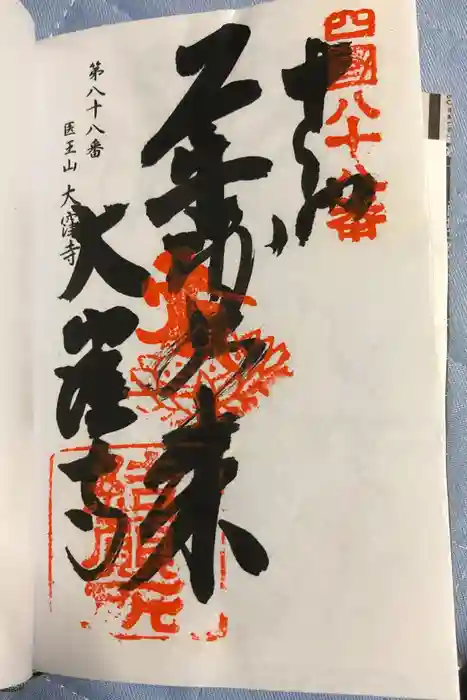 四國八十八番
奉納
薬師如来
大窪寺
結願所
第八十八番
医王山 大窪寺